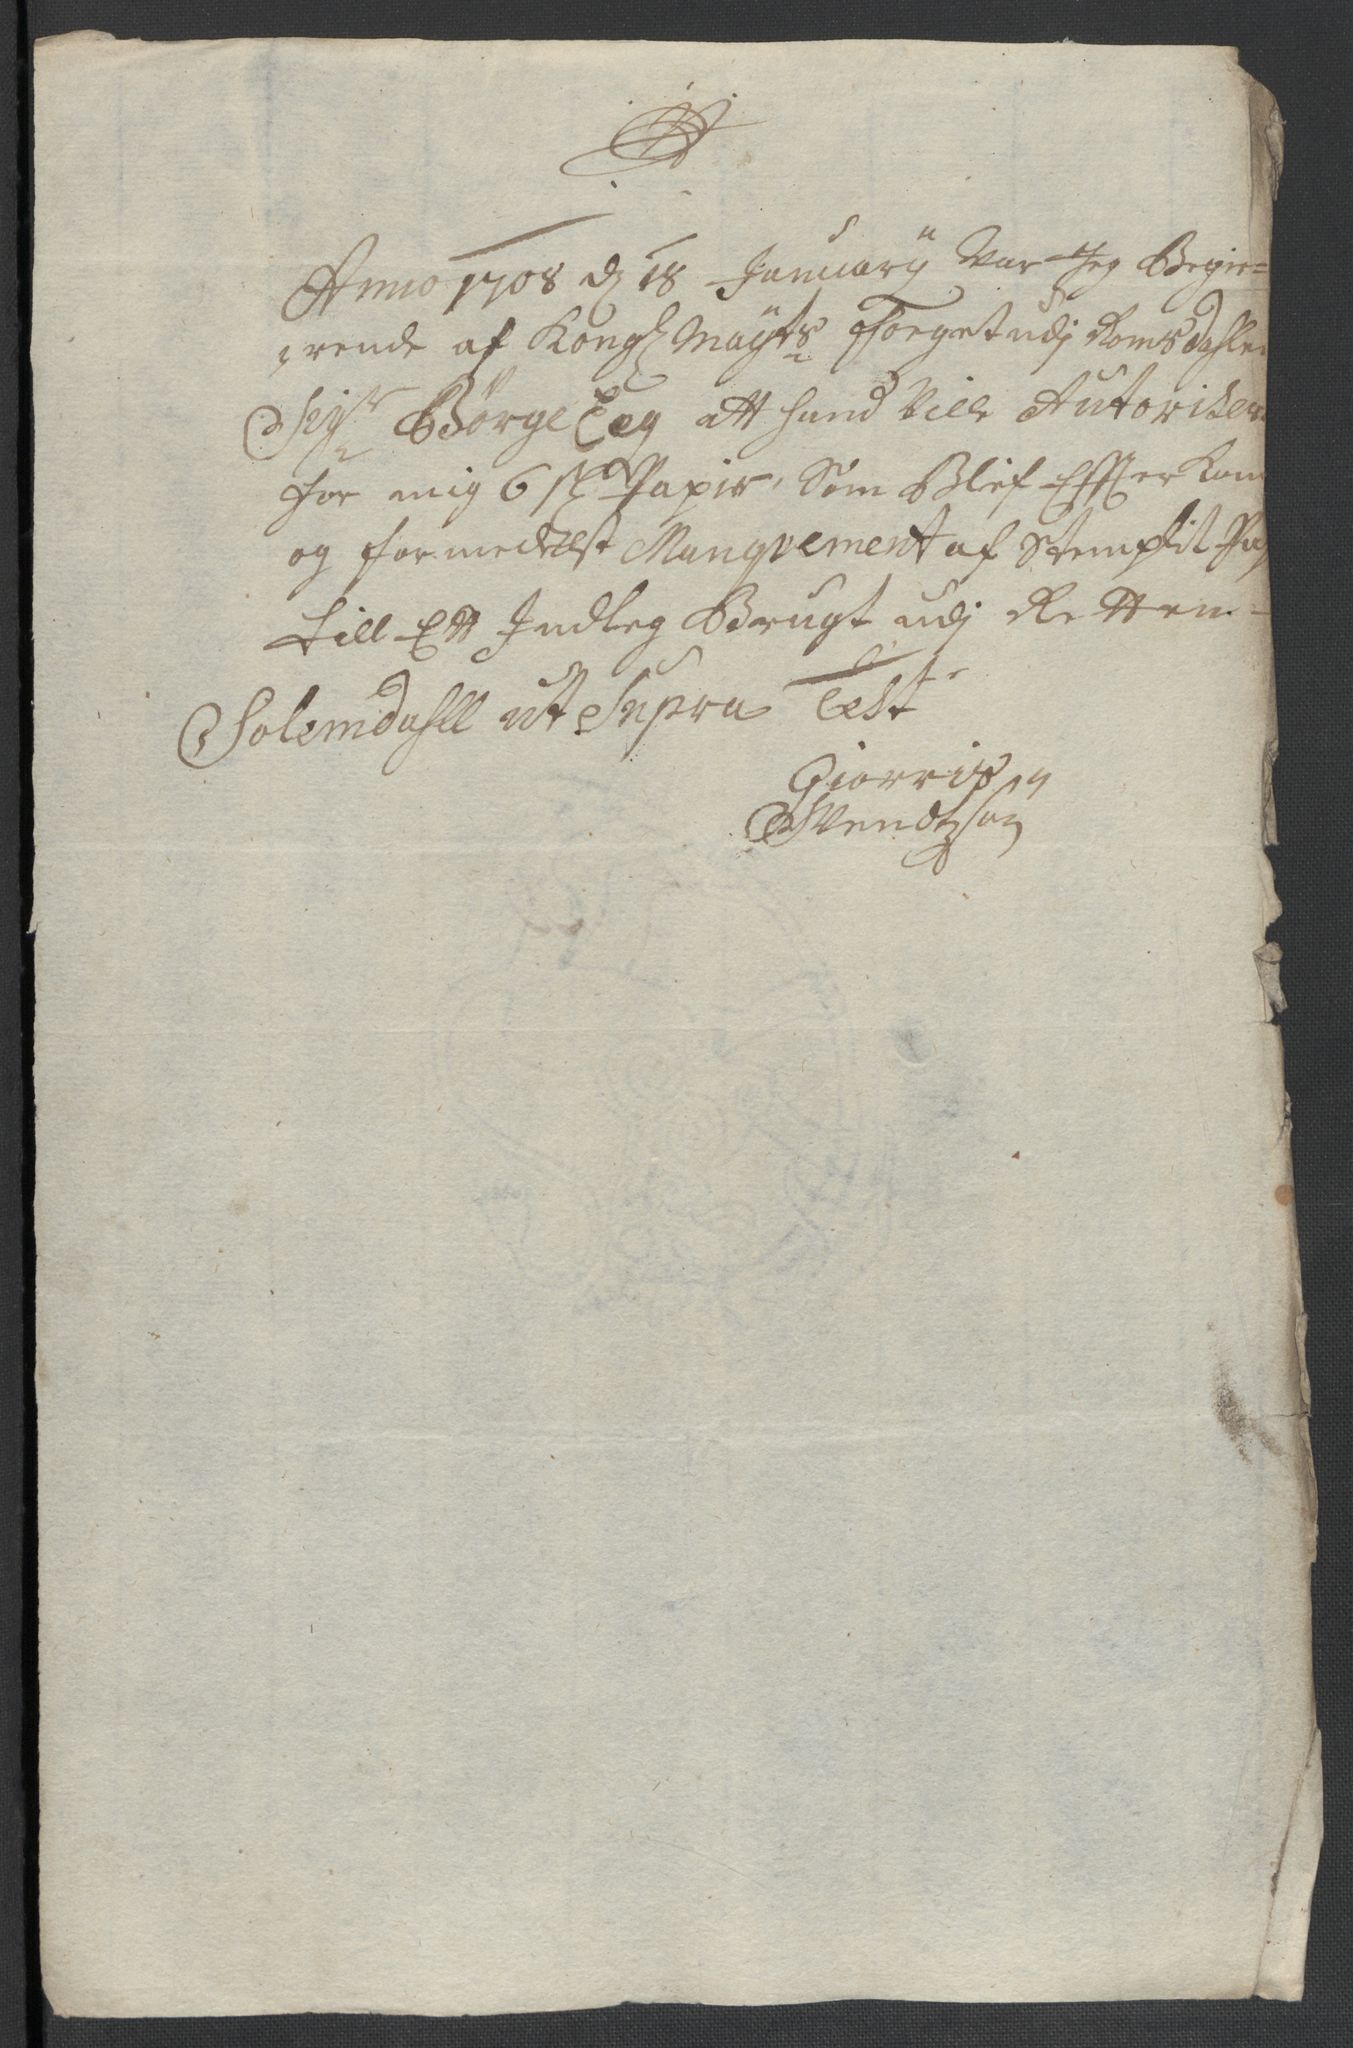 Anno 1708 d 18 Januarÿ Var Jeg Begie=
rende af Kongl Mayts foeget udj Romsdahlen
Sigr Börge Eeg att hand Ville Autorisere
for mig 6 sk Papir, Som Blef Effter kom
og formedelst Manqvement af Stemplit Pap
till Ett Indleg Brugt udj Retten
Solemdahll ut Supra Test
Giorris
Svendsøn